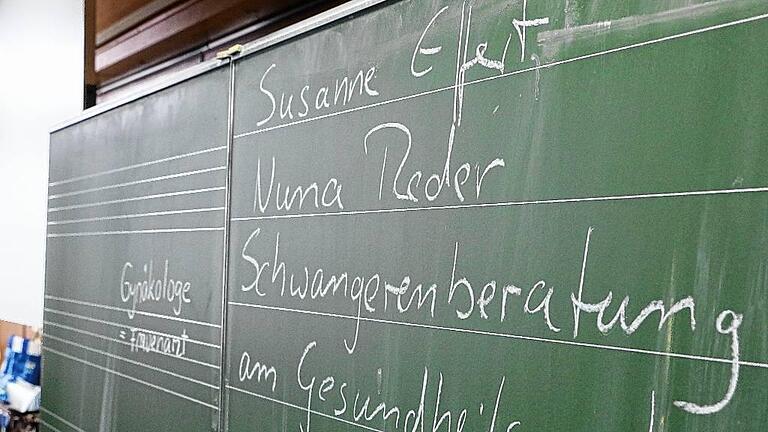 Gynäkologe
= Frauenarzt
Susanne Effert
Nuna Reder
Schwangerenberatung
am Gesundheits